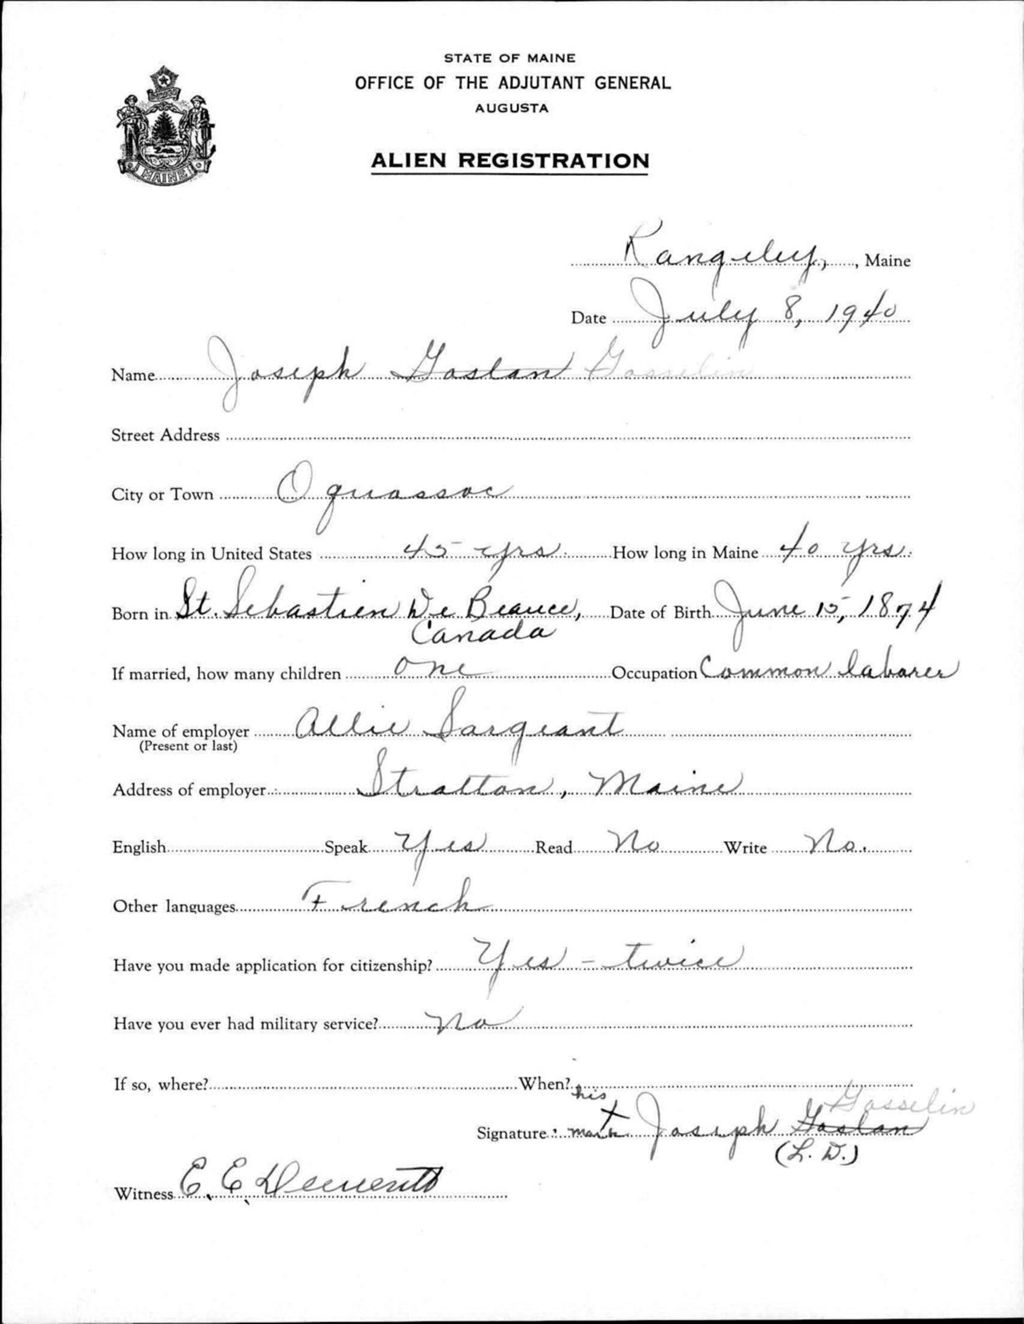 STATE OF MAINE
OFFICE OF THE ADJUTANT GENERAL
AUGUSTA
MAINE
ALIEN REGISTRATION
Rangeley, , Maine
Date July 8, 1940
Name Joseph Goslan Gosselin
Street Address
City or Town Oquossoc
How long in United States 45 yrs. How long in Maine 40 yrs.
Born in St. Sebastien De Beauce, Date of Birth June 15, 1874
Canada
If married, how many children One Occupation Common laborer
Name of employer Allie Sargeant
(Present or last)
Address of employer Stratton, Maine
English Speak Yes Read No Write No.
Other languages French
Have you made application for citizenship? Yes - twice
Have you ever had military service? No
If so, where? When?
his Gosselin
Signature: mark Joseph Goslan
(L. D.)
Witness E. E. Dement